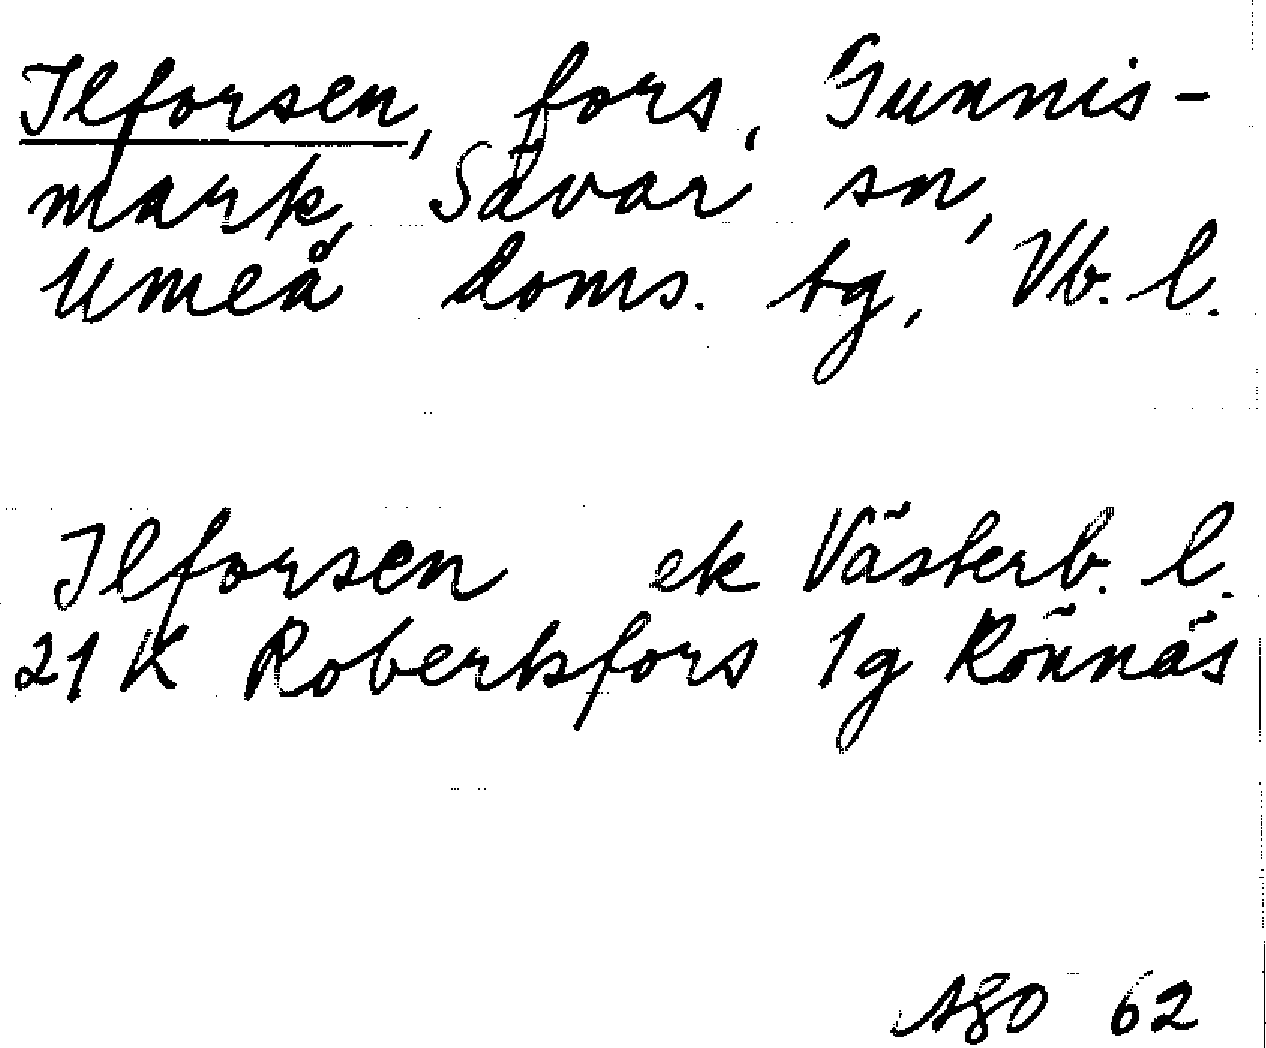 Ilforsen, fors, Gunnis-
mark, Sävar sn,
Umeå doms. tg, Vb. l.
Ilforsen ek Västerb. l.
21 K Robertsfors 1g Rönnäs
62